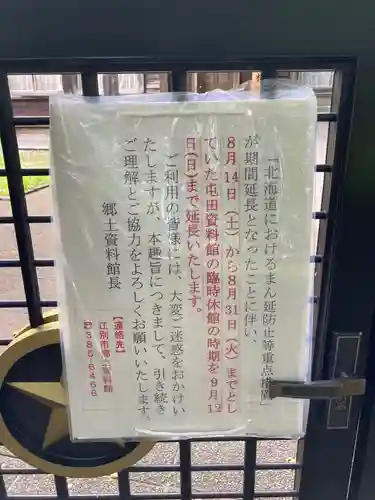 「北海道におけるまん延防止等重点措置」
が期間延長となったことに伴い、
8月14日（土）から8月31日（火）までとし
ていた屯田資料館の臨時休館の時期を9月12
日（日）まで延長いたします。
ご利用の皆様には、大変ご迷惑をおかけい
たしますが、本趣旨につきまして、引き続き
ご理解とご協力をよろしくお願いいたします。
郷土資料館長
【連絡先】
江別市郷土資料館
☎385-6466